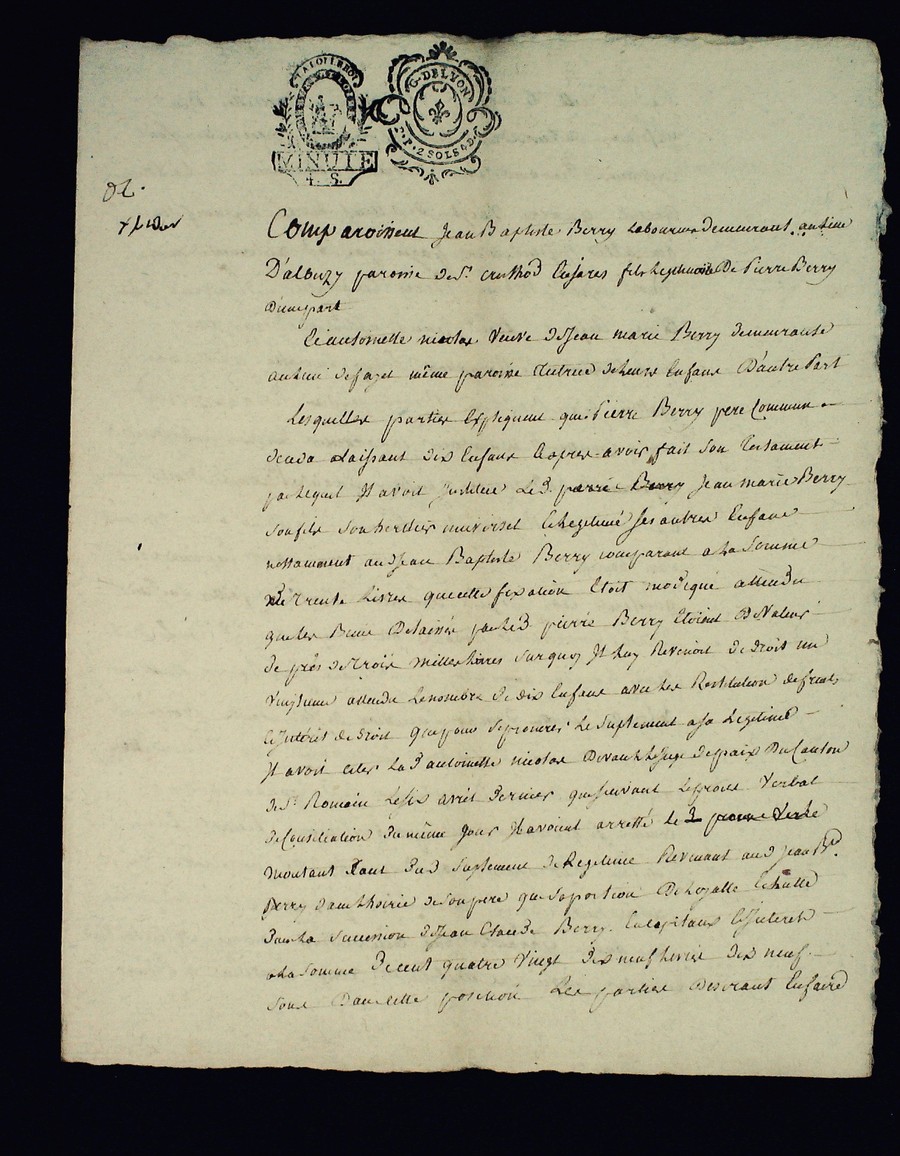 LA LOI LE ROI
MINUTE
4. S.
G. DE LYON
2 SOLS 8 D.
Comparoissent Jean Baptiste Berry Laboureur demeurant au lieu
D'alouzy paroisse de St. En jarés fils Legitime De Pierre Berry
D'une part
Et antoinette nicolas veuve de Jean marie Berry demeurante
au lieu de fayet même paroisse tutrice de leurs Enfans D'autre Part
Lesquelles parties Expliquent que Pierre Berry pere Commun
deceda delaissant dix Enfans Et apres avoir fait son testament
par lequel Il avoit Institué Le d. pierre Berry Jean marie Berry
son fils son heritier universel Et Legitimé ses autres Enfans
nottamment aud Jean Baptiste Berry comparant a la Somme
de trente Livres que cette fixation Etoit modique attendu
que les Biens Delaissés par le d. pierre Berry Etoient De Valeur
de près de trois milles livres sur quoy Il luy Revenoit de droit un
vingtieme attendu Le nombre de dix Enfans avec les Restitution de fruits
Et Interêt de droit que pour se procurer le suplement a sa Legitime
Il avoit citer La d antoinette nicolas Devant Le Juge de paix Du Canton
de St. Romain Le six avril dernier que suivant Le procès Verbal
de Conciliation du même Jour Ils avoient arretté le
montant tant dud suplement de Legitime Revenant aud Jean Bte.
Berry dans L'hoirie de son pere que sa portion Echutte
Dans la succession de Jean Claude Berry. En capitaux Et Interets
a la somme De cent quatre vingt dix neuf livres dix neuf
sous Dans cette position Les parties Desirant En faire